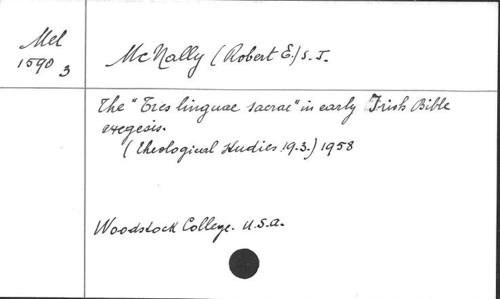 Mel
1590 3
McNally (Robert E.) S. J.
The "Tres linguae sacrae" in early Irish Bible
exegesis.
(Theological Studies 19.3.) 1958
Woodstock College. U.S.A.